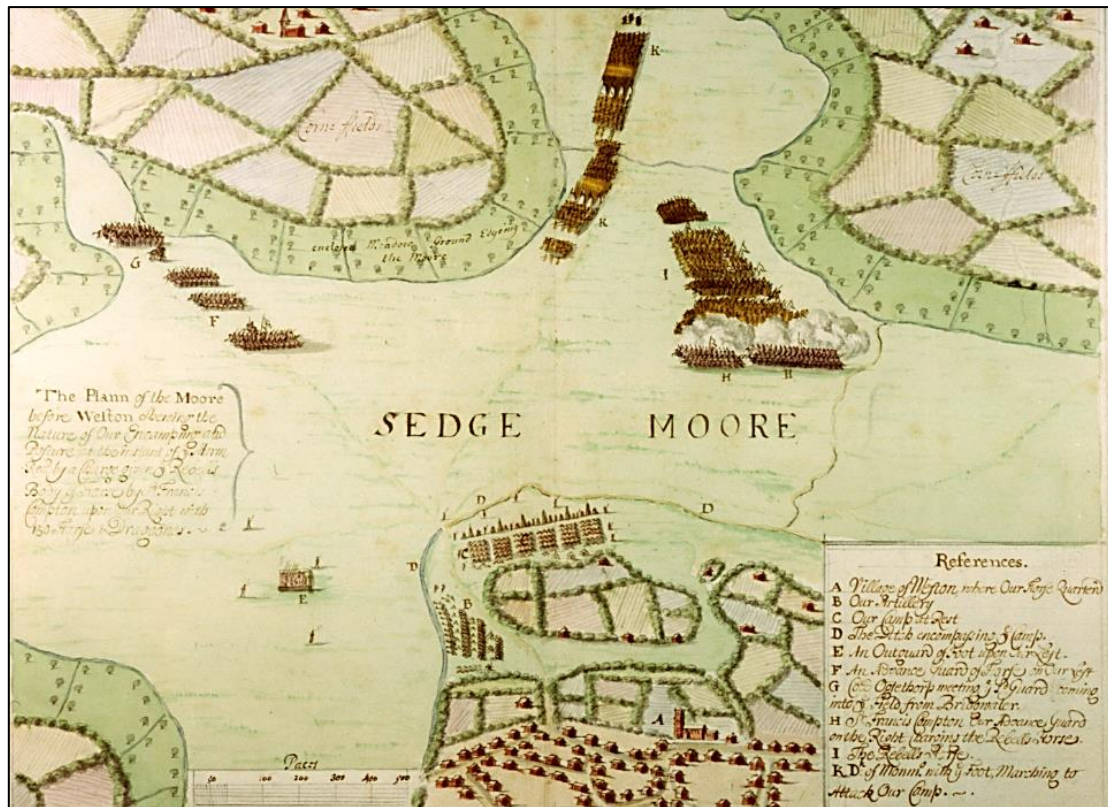 Corne fields
Corne fields
enclosed Meadow Ground Edgeing
the Moore
K
K
I
G
F
H
H
The Plann of the Moore
before Weston shewing the
Nature of Our Encamping and
Posture at the instant of
Red by a Charge upon Rebells
Body of Horse by Sr Francis
Compton upon our Right with
150 Horse & Dragoones.
SEDGE MOORE
D
D
C
D
B
E
A
References.
A Village of Weston where Our Horse Quarterd
B Our Artillery
C Our Camp at Rest
D The Ditch encompasing ye Camp.
E An Outguard of Foot upon our Left.
F An Advance Guard of Horse on Our Left
G Coll Oglethorp meeting ye Sd Guard coming
into ye Field from Bridgwater.
H Sr Francis Compton Our Advance Guard
on the Right charging the Rebells Horse.
I The Rebells Horse
K D: of Monmo with ye Foot, Marching to
Attack Our Camp.
Paces
50 100 200 300 400 500